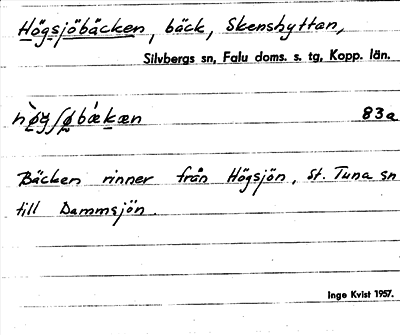 Högsjöbäcken, bäck, Skenshyttan,
Silvbergs sn, Falu doms. s. tg, Kopp. län.
83a
Bäcken rinner från Högsjön, St. Tuna sn
till Dammsjön.
Inge Kvist 1957.